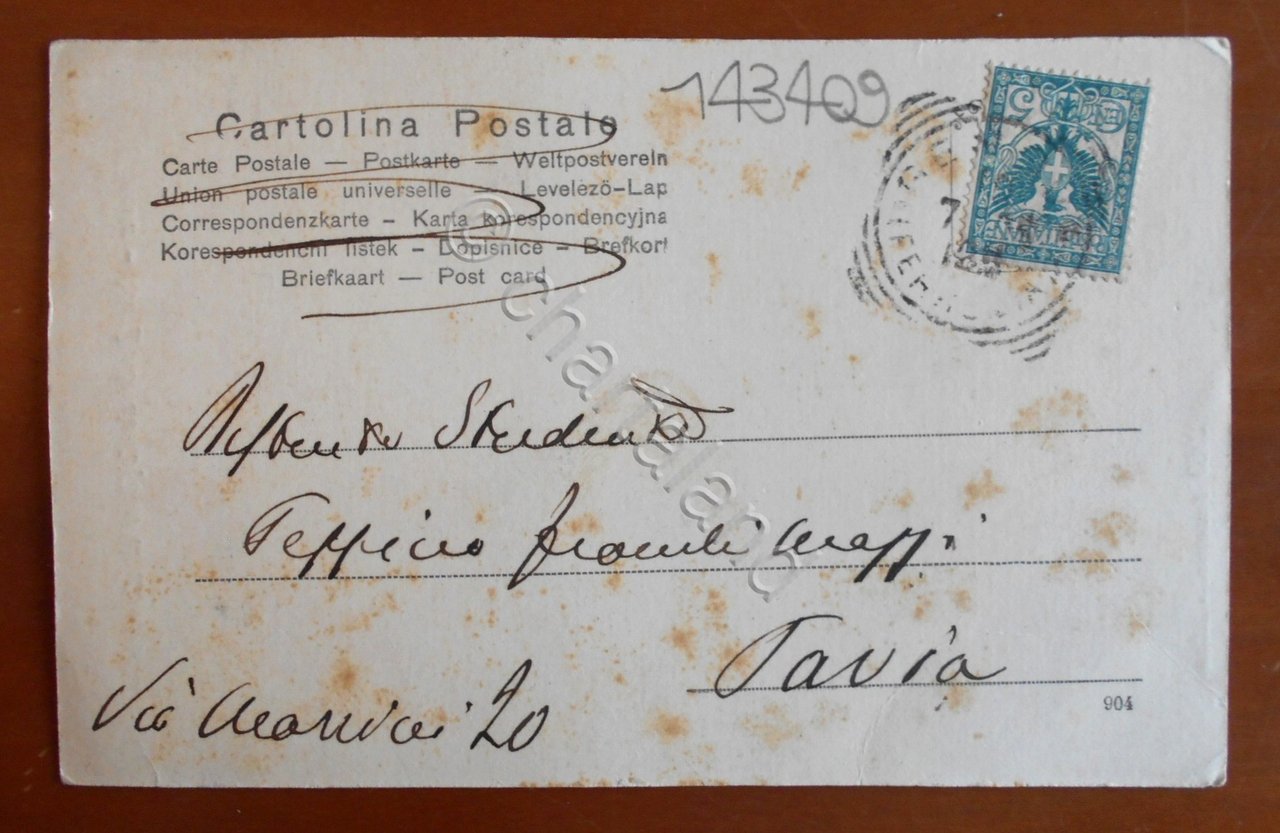 143409
Cartolina Postale
Carte Postale — Postkarte — Weltpostverein
Union postale universelle — Levelező-Lap
Correspondenzkarte – Karta korespondencyjna
Korespondenchi listek – Dopisnice – Brefkort
Briefkaart — Post card
CENT. 5
7
Studente
Peppino
Pavia
904
Via 20
© charmaland